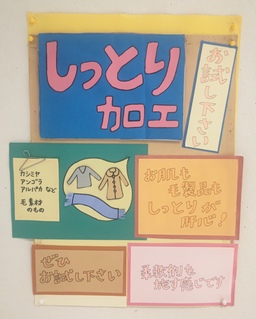 しっとり
加工
お試し下さい
カシミヤ
アンゴラ
アルパカ など
毛素材
のもの
お肌も
毛製品も
しっとりが
肝心!
ぜひ
お試し下さい
柔軟剤を
施す感じです